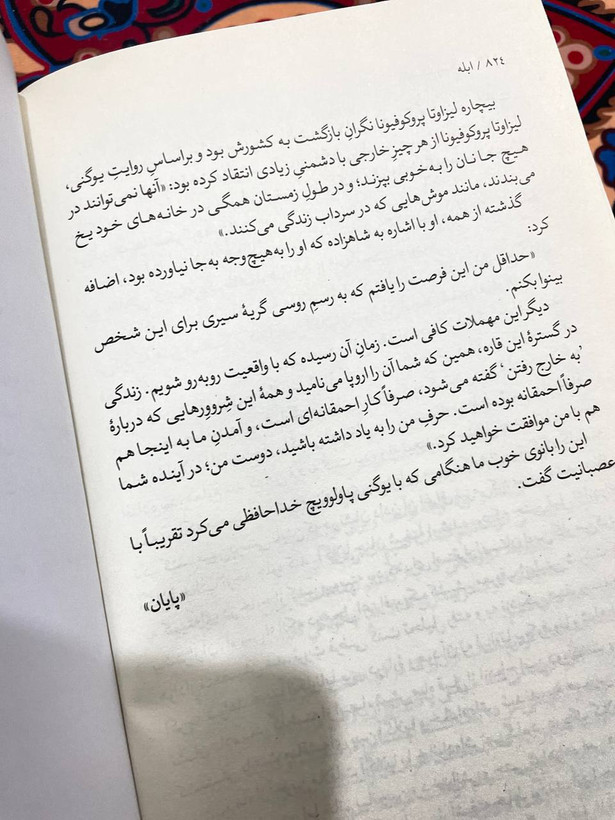 ۸۲٤ / ابله
بیچاره لیزاوتا پروکوفیونا نگرانِ بازگشت به کشورش بود و براساسِ روایتِ یوگنی،
لیزاوتا پروکوفیونا از هر چیزِ خارجی با دشمنیِ زیادی انتقاد کرده بود: «آنها نمی‌توانند در
هیچ جا نان را به‌خوبی بپزند؛ و در طولِ زمستان همگی در خانه‌های خود یخ
می‌بندند، مانند موش‌هایی که در سرداب زندگی می‌کنند.»
گذشته از همه، او با اشاره به شاهزاده که او را به‌هیچ‌وجه به‌جا نیاورده بود، اضافه
کرد:
«حداقل من این فرصت را یافتم که به رسمِ روسی گریهٔ سیری برای این شخص
بینوا بکنم.
دیگر این مهملات کافی است. زمانِ آن رسیده که با واقعیت روبه‌رو شویم. زندگی
در گسترهٔ این قاره، همین که شما آن را اروپا می‌نامید و همهٔ این شِروورهایی که دربارهٔ
'به خارج رفتن' گفته می‌شود، صرفاً کارِ احمقانه‌ای است، و آمدنِ ما به اینجا هم
صرفاً احمقانه بوده است. حرفِ من را به یاد داشته باشید، دوست من؛ در آینده شما
هم با من موافقت خواهید کرد.»
این را بانوی خوب ما هنگامی که با یوگنی پاولوویچ خداحافظی می‌کرد تقریباً با
عصبانیت گفت.
«پایان»